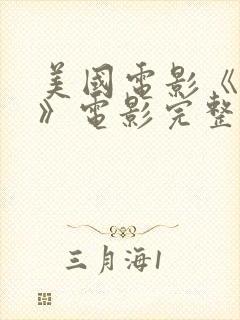 美國電影《
》電影完整
三月海1